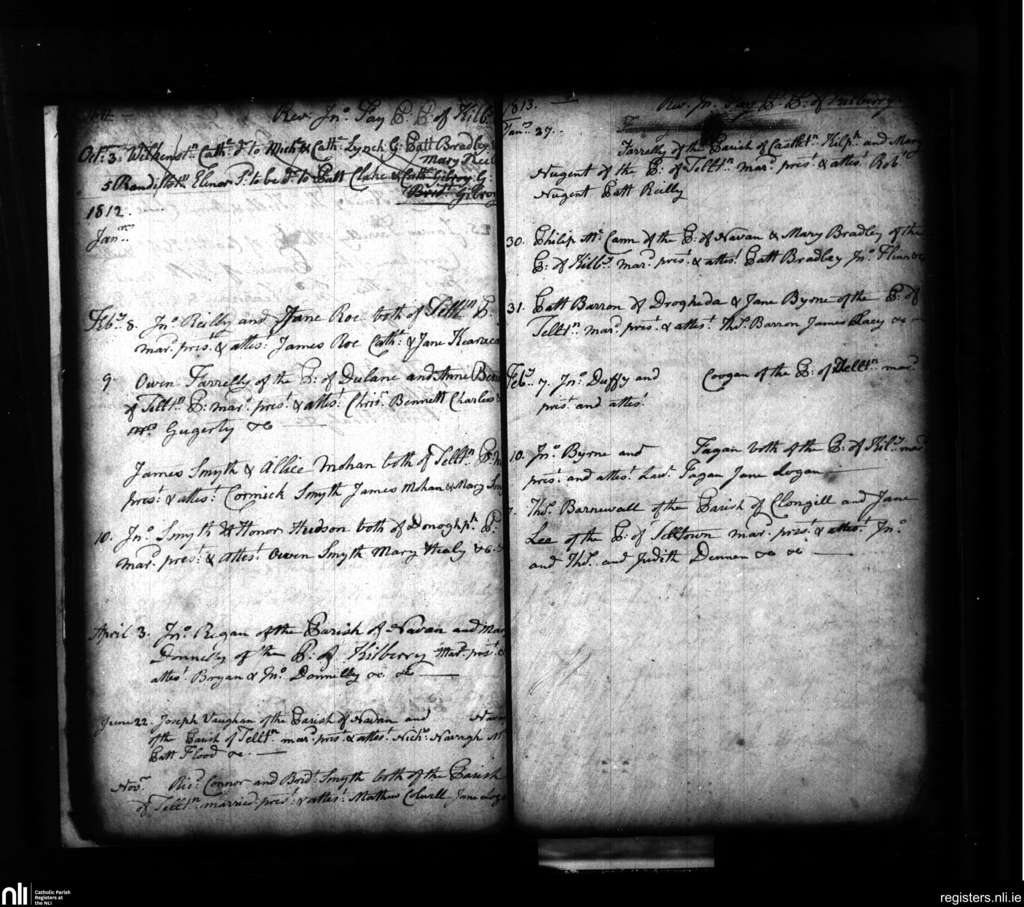 Rev. Jno. Fay P. P. of Kilb
Oct: 3. Wilkinsn. Cathe. D to Mich & Cath: Lynch G: Patt Bradley
Mary Reil
5 Randilstn. Elenor to be Dr. to Patt Clake & Cath Gilroy G:
Brid. Gilroy
1812.
Jann.
Feby. 8. Jno. Reilly and Jane Roe both of P:
mard. prest. & attest: James Roe Cath: & Jane Kearn
9. Owen Farrelly of the P: of Dulane and Anne Benn
of Telltn. P: mard. prest. & attest: Chrisr. Bennett Charles
Mrs. Gugerty &c
James Smyth & Allice Mohan both of Telltn. P:
prest. & attest: Cormick Smyth James Mohan & Mary Sm
10. Jno. Smyth & Honor Hudson both of Donoghph. P:
mard. prest. & attest. Owen Smyth Mary Healy &c.
April 3. Jno. Regan of the Parish of Navan and Mar
Donnelly of the P: of Kilberry Mard. prest. &
attest. Bryan & Jno. Donnelly &c. &c
June 22. Joseph Vaughan of the Parish of Navan and Nav
of the Parish of Telltn. mard. prest. & attest. Nichs. Navagh
Patt Flood &c.
Novr. Ricd. Connor and Bridt. Smyth both of the Parish
of Telltn. married prest. & attest. Mathew Colwell Jane Log
1813.
Rev. Jn. Fay P. P. of Kilberry
Jany. 27.
Farrelly of the Parish of Castletn. Kilph. and Mary
Nugent of the P: of Telltn. mard. prest. & attest. Robt.
Nugent Patt Reilly
30. Philip McCann of the P: of Navan & Mary Bradley of the
P: of Kilby. mard. prest. & attest. Patt Bradley Jno.
31. Patt Barron of Drogheda & Jane Byrne of the P: of
Telltn. mard. prest. & attest. Thos. Barron James &c
Feby. 7. Jno. Duffy and Coogan of the P: of Telltn. mard.
prest. and attest.
10. Jno. Byrne and Fagan both of the P: of Kilby. mard
prest. and attest. Laur. Fagan Jane Logan
Thos. Barnewall of the Parish of Clongill and Jane
Lee of the P: of mard. prest. & attest. Jno.
and Thos. and Judith Dennen &c &c
nli
Catholic Parish
Registers at
the NLI
registers.nli.ie